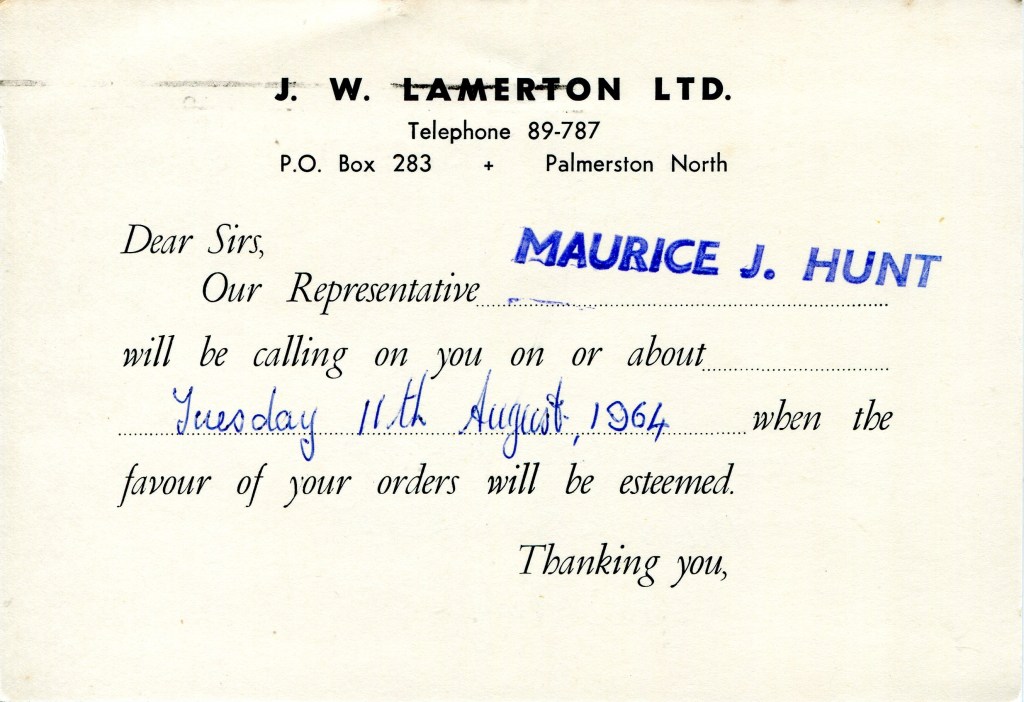 J. W. LAMERTON LTD.
Telephone 89-787
P.O. Box 283 + Palmerston North
Dear Sirs,
MAURICE J. HUNT
Our Representative
will be calling on you on or about
Tuesday 11th August, 1964 when the
favour of your orders will be esteemed.
Thanking you,